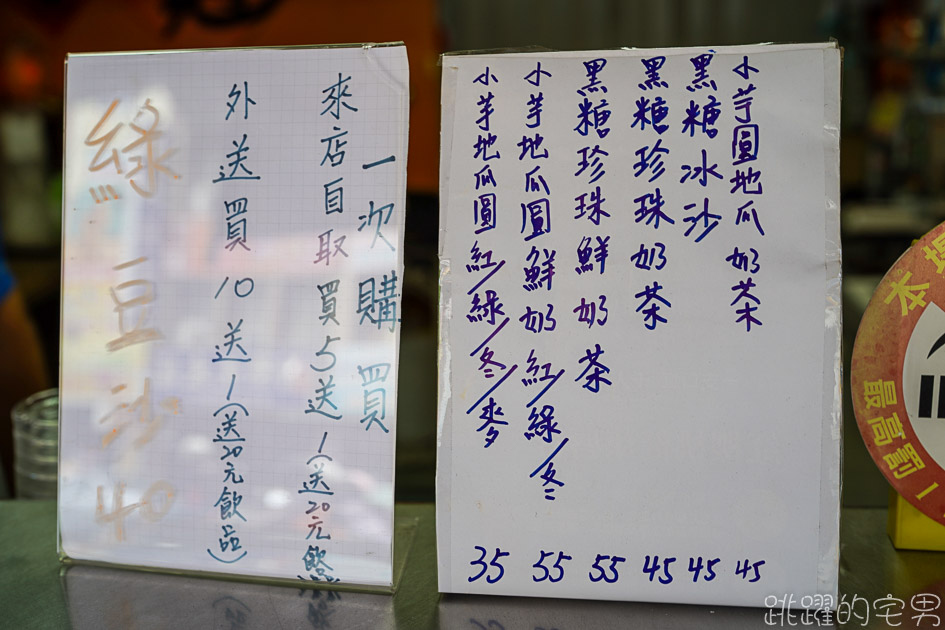 一次購買
來店自取買5送1(送20元飲
外送買10送1(送20元飲品)
綠豆沙40
小芋圓地瓜奶茶 45
黑糖冰沙 45
黑糖珍珠奶茶 45
黑糖珍珠鮮奶茶 55
小芋地瓜圓鮮奶紅/綠/冬 55
小芋地瓜圓紅/綠/冬/麥 35
本場
最高罰
跳躍的宅男